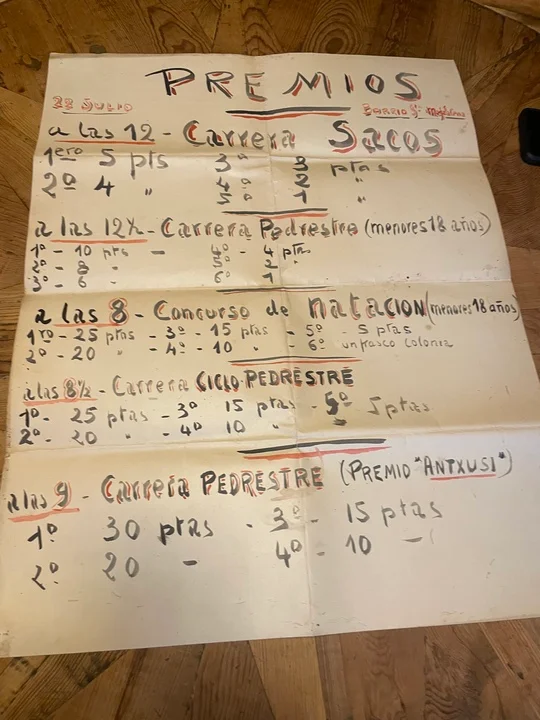 PREMIOS
22 JULIO BARRIO Sª Magdalena
a las 12 - Carrera Sacos
1ero 5 pts 3º 3 ptas
2º 4 " 4º 2 "
5º 1 "
a las 12½ - Carrera Pedrestre (menores 18 años)
1º - 10 pts - 4º - 4 pta
2º - 8 " 5º 2 "
3º - 6 " 6º 1
a las 8 - Concurso de natacion (menores 18 años)
1ro - 25 ptas - 3º - 15 ptas - 5º - 5 ptas
2º - 20 " - 4º - 10 " 6º un frasco colonia
a las 8½ - Carrera CICLO-PEDRESTRE
1º - 25 ptas - 3º 15 ptas - 5º 5 ptas
2º - 20 " - 4º 10 "
a las 9 - Carrera PEDRESTRE (PREMIO "ANTXUSI")
1º 30 ptas - 3º - 15 ptas
2º 20 - 4º - 10 -